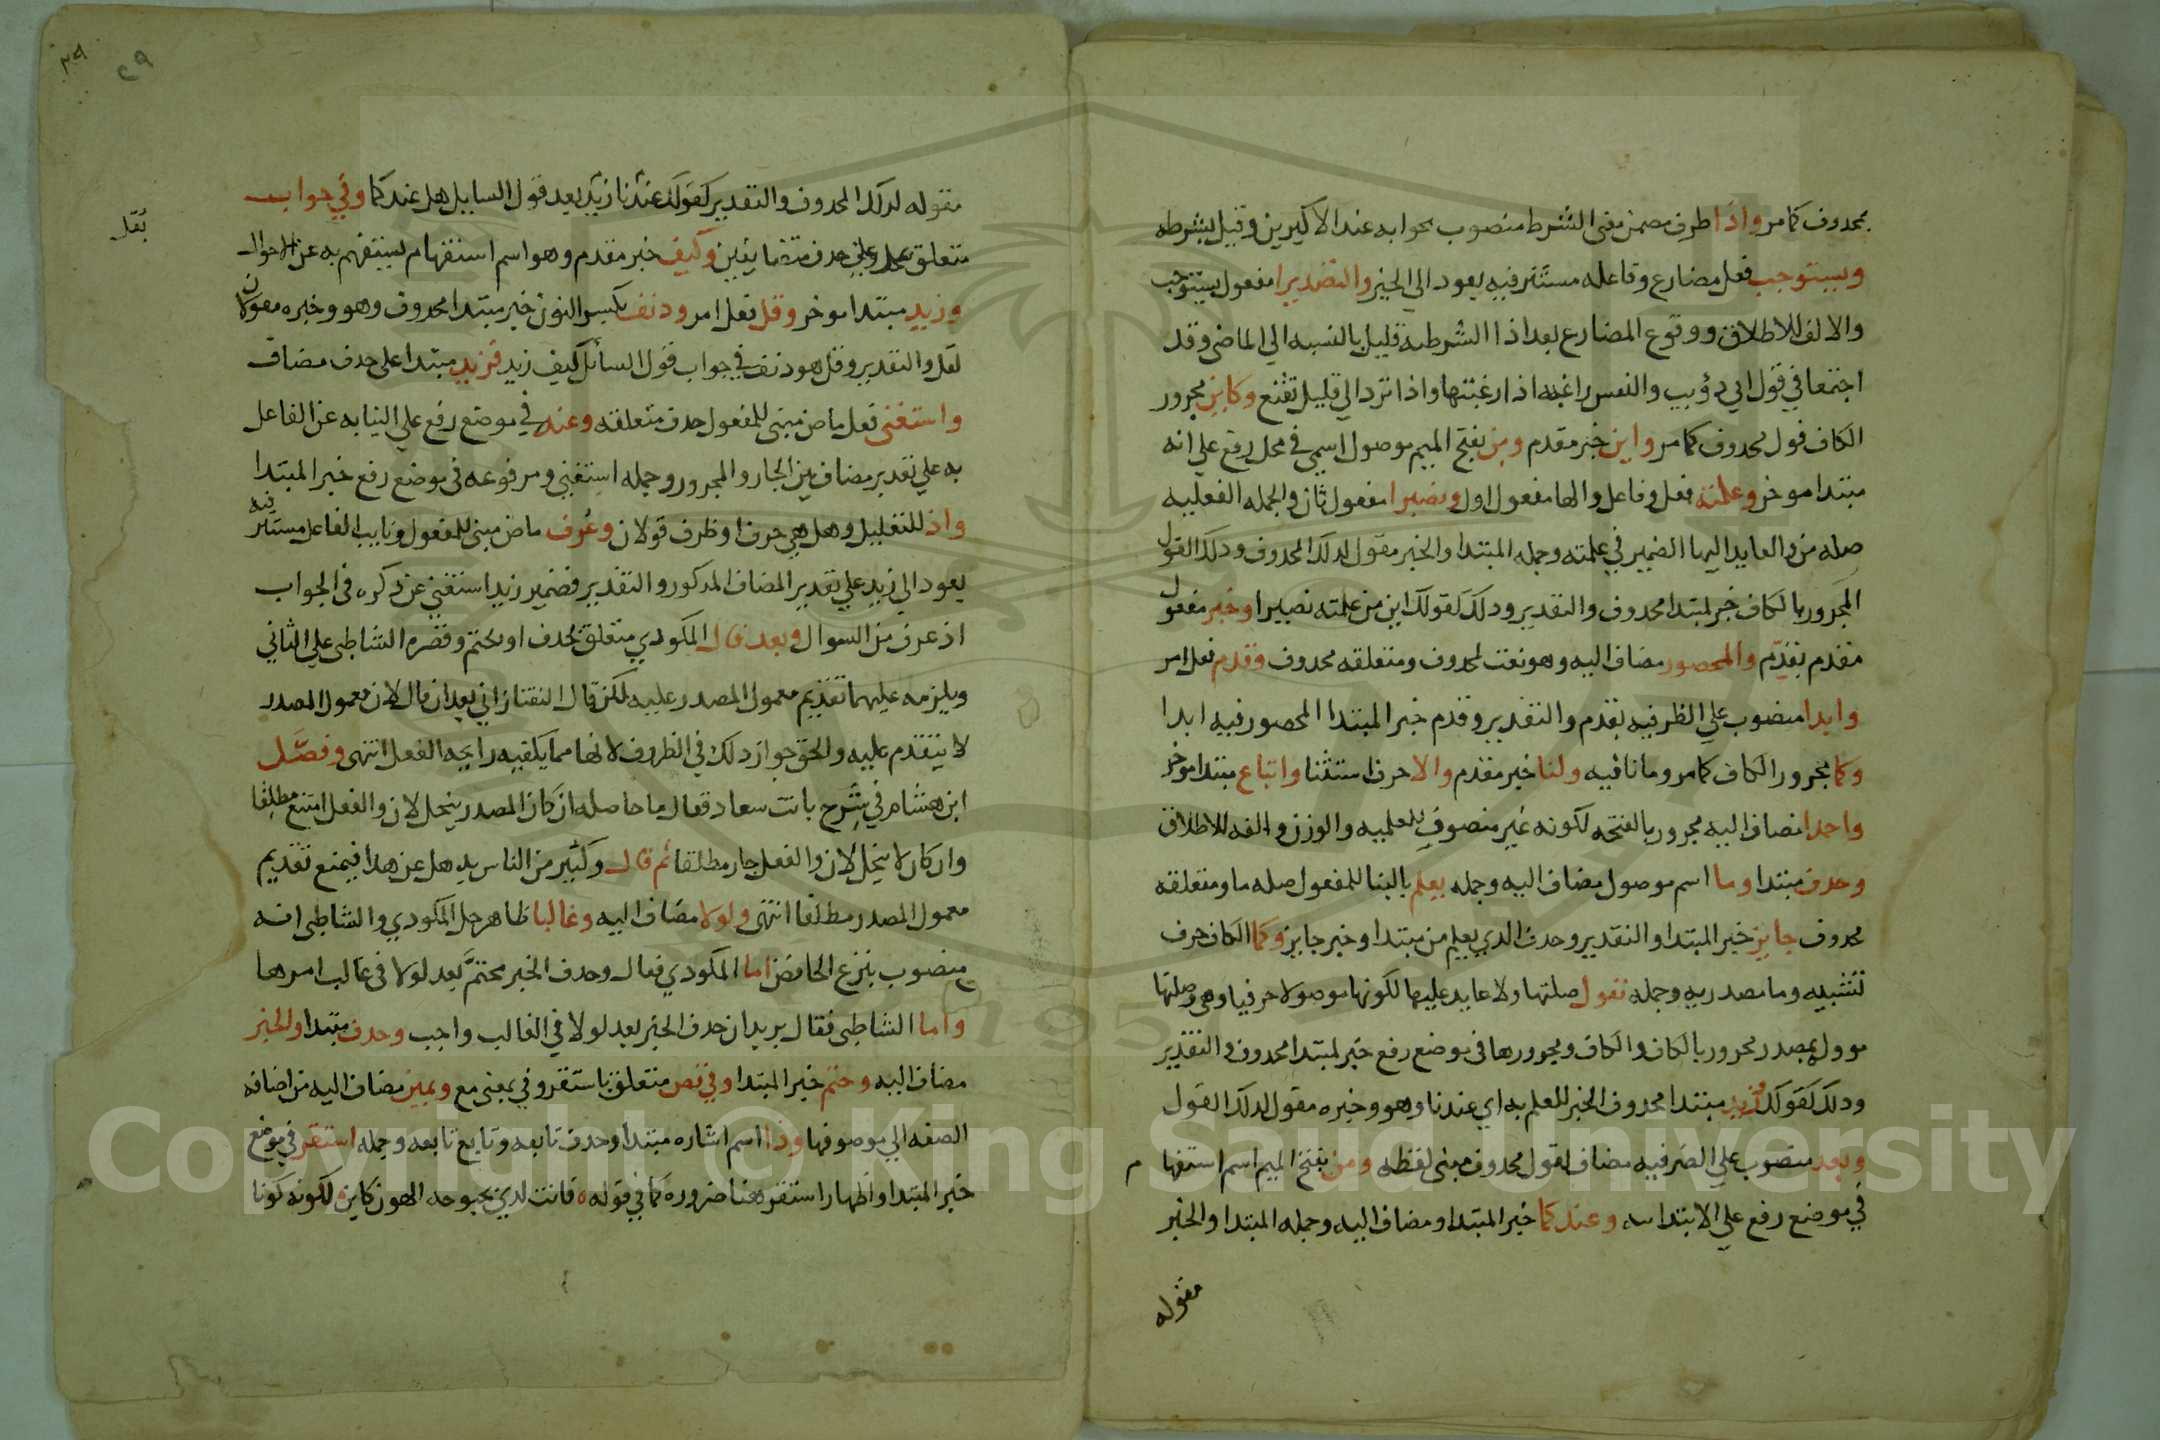 محدوف كما مر واذا ظرف مضمن معنى الشرط منصوب بجوابه عند الاكثرين وقيل بشرطه
ويستوجب فعل مضارع وفاعله مستتر فيه يعود الي الخبر والتصديرا مفعول يستوجب
والالف للاطلاق ووقوع المضارع بعد اذا الشرطيه قليل بالنسبه الي الماضي وقد
اجتمعا في قول ابي ذؤيب والنفس راغبه اذا رغبتها واذا ترد الي قليل تقنع وكاين مجرور
الكاف قول محدوف كما مر واين خبر مقدم ومن بفتح الميم موصول اسمي في محل رفع علي انه
مبتدا موخر وعلمته فعل وفاعل والها مفعول اول ونصيرا مفعول ثان والجمله الفعليه
صله من والعايد اليها الضمير في علمته وجمله المبتدا والخبر مقول لدلك المحدوف ودلك القول
المجرور بالكاف خبر لمبتدا محدوف والتقدير ودلك كقولك اين من علمته نصيرا وخبر مفعول
مقدم بقدم والمحصور مضاف اليه وهو نعت لمحدوف ومتعلقه محدوف وقدم فعل امر
وابدا منصوب علي الظرفيه بقدم والتقدير وقدم خبر المبتدا المحصور فيه ابدا
وكما مجرور الكاف كما مر وما نافيه ولنا خبر مقدم والا حرف استثنا واتباع مبتدا موخر
واحدا مضاف اليه مجرور بالفتحه لكونه غير منصرف للعلميه والوزن والفه للاطلاق
وحدف مبتدا وما اسم موصول مضاف اليه وجمله يعلم بالبنا للمفعول صله ما ومتعلقه
محدوف جايز خبر المبتدا والتقدير وحدف الدي يعلم من مبتدا وخبر جايز وكما الكاف حرف
تشبيه وما مصدريه وجمله تقول صلتها ولا عايد عليها لكونها موصولا حرفيا وهي وصلتها
موول بمصدر مجرور بالكاف والكاف ومجرورها في موضع رفع خبر لمبتدا محدوف والتقدير
ودلك كقولك فزيد مبتدا محدوف الخبر للعلم به اي عندنا وهو وخبره مقول لدلك القول
وبعد منصوب علي الظرفيه مضاف لقول محدوف مبنى لفظه ومن بفتح الميم اسم استفهام
في موضع رفع علي الابتدا وعندكما خبر المبتدا ومضاف اليه وجمله المبتدا والخبر
مقوله
٢٩
مقوله لدلك المحدوف والتقدير كقولك عندنا زيد بعد قول السايل هل عندكما وفي جواب
متعلق بمحدوف علي حدف متضايفين وكيف خبر مقدم وهو اسم استفهام يستفهم به عن الاحوال
وزيد مبتدا موخر وقل فعل امر ودنف بكسر النون خبر مبتدا محدوف وهو وخبره مقولان
لقل والتقدير وقل هو دنف في جواب قول السائل كيف زيد فزيد مبتدا على حدف مضاف
واستغنى فعل ماض مبنى للمفعول حدف متعلقه وعنه في موضع رفع علي النيابه عن الفاعل
به علي تقدير مضاف بين الجار والمجرور وجمله استغني ومرفوعه في موضع رفع خبر المبتدا
واذ للتعليل وهل هي حرف او ظرف قولان وعرف ماض مبنى للمفعول ونايب الفاعل مستتر فيه
يعود الي زيد علي تقدير المضاف المدكور والتقدير فضمير زيد استغني عن دكره في الجواب
اذ عرف من السوال وبعد قال المكودي متعلق بحدف او بحتم وقصره الشاطبي علي الثاني
ويلزمه عليهما تقديم معمول المصدر عليه لكن قال التفتازاني بعد ان قال لان معمول المصدر
لا يتقدم عليه والحق جواز دلك في الظروف لانها مما يكفيه رايحه الفعل انتهى وفصل
ابن هشام في شرح بانت سعاد فقال ما حاصله ان كان المصدر ينحل لان والفعل امتنع مطلقا
وان كان لا ينحل لان والفعل جاز مطلقا ثم قال وكثير من الناس يدهل عن هدا فيمنع تقديم
معمول المصدر مطلقا انتهى ولولا مضاف اليه وغالبا ظاهر حل المكودي والشاطبي انه
منصوب بنزع الخافض اما المكودي فقال وحدف الخبر محتم بعد لولا في غالب امرها
واما الشاطبي فقال يريد ان حدف الخبر بعد لولا في الغالب واجب وحدف مبتدا والخبر
مضاف اليه وحتم خبر المبتدا وفي نص متعلق باستقر وفي بمعنى مع ويمين مضاف اليه من اضافه
الصفه الي موصوفها وذا اسم اشاره مبتدا وحدف تابعه وتابع تابعه وجمله استقر في موضع
خبر المبتدا واظهار استقر هنا ضروره كما في قوله فانت لدي بحبوحه الهون كاين لكونه كونا